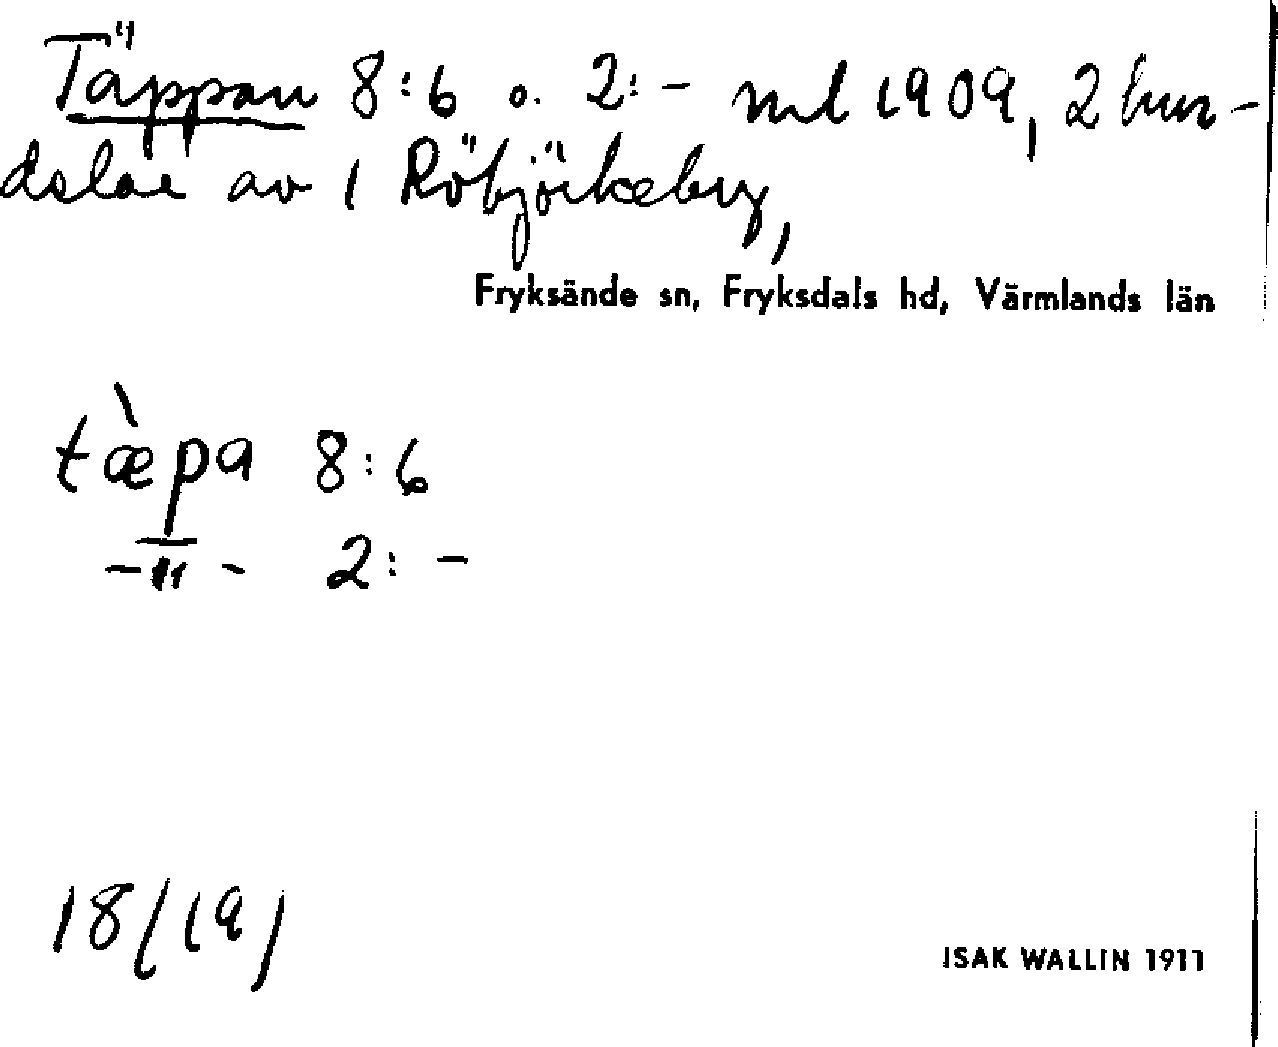 Täppan 8:6 o. 2:- ml 1909, 2 hun-
delar av 1 Röbjörkeberg,
Fryksände sn, Fryksdals hd, Värmlands län
tæ̀pa 8:6
-"- 2: -
18/19/
ISAK WALLIN 1911